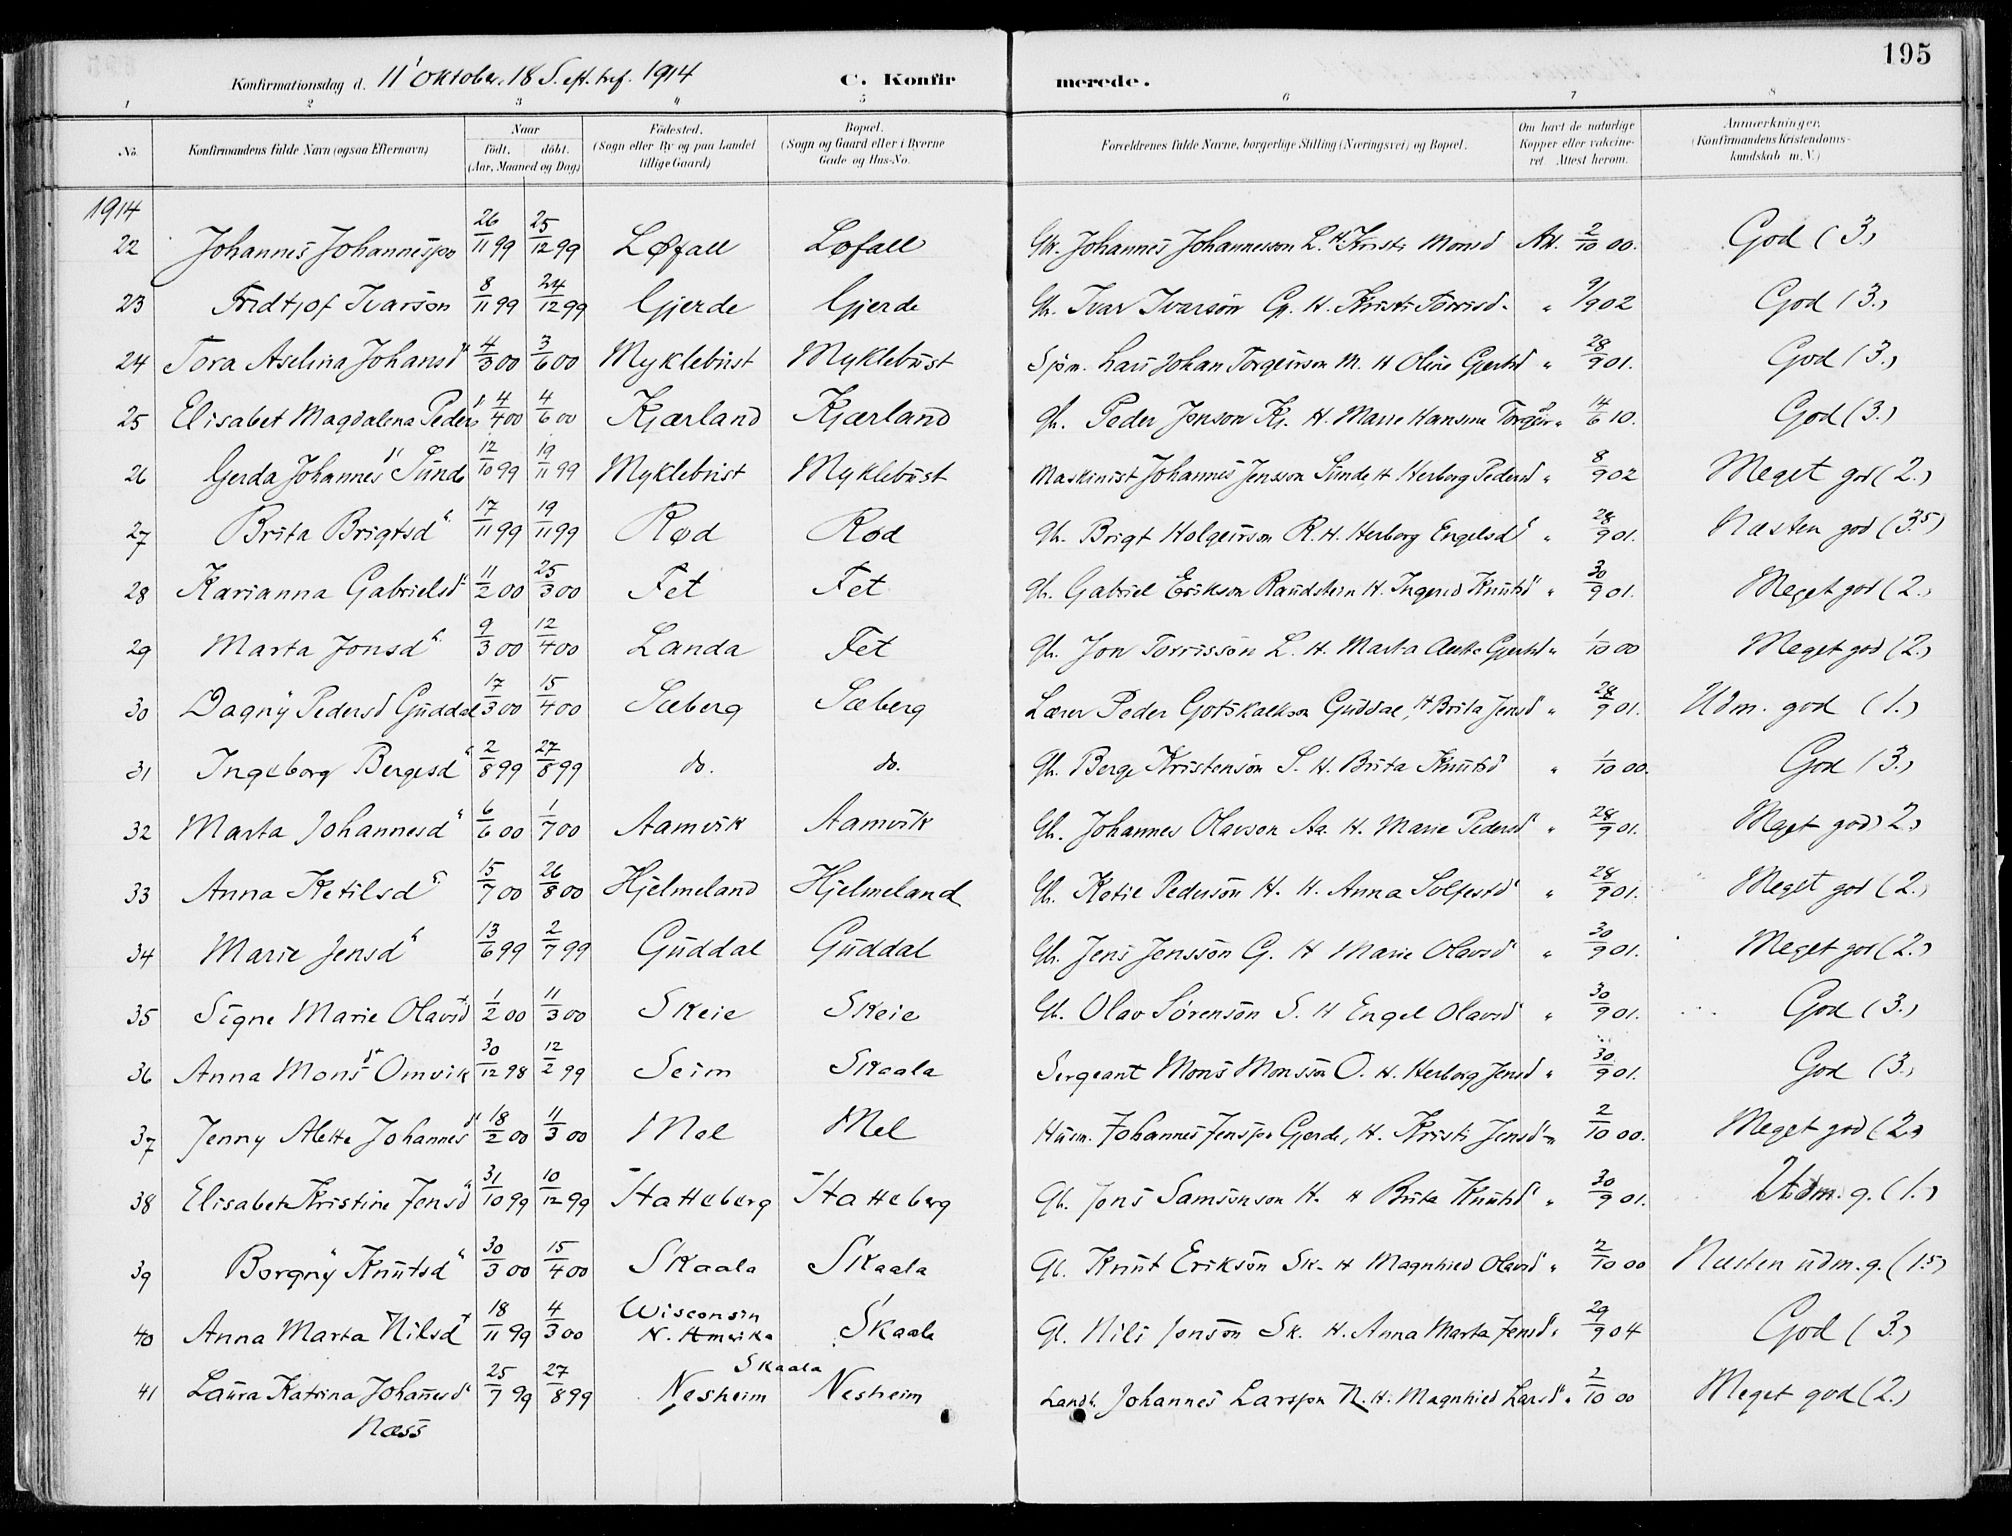 195
Konfirmationsdag d. 11' Oktober. 18 S. eft. tref. 1914 C. Konfirmerede.
1 2 3 4 5 6 7 8
No. Konfirmandens fulde Navn (ogsaa Efternavn) Naar födt. döbt. (Aar, Maaned og Dag) Födested. (Sogn eller By og paa Landet tillige Gaard) Bopæl. (Sogn og Gaard eller i Byerne Gade og Hus-No. Forældrenes fulde Navne, borgerlige Stilling (Næringsvei) og Bopæl. Om havt de naturlige Kopper eller vaccineret. Attest herom. Anmærkninger. (Konfirmandens Kristendomskundskab m.V.)
1914
22 Johannes Johannesson 26/11 99 25/12 99 Løfall Lofall Gbr. Johannes Johannesson L. H Kristi Monsd Att. 2/10 00. God (3.)
23 Fridtjof Ivarson 8/11 99 24/12 99 Gjerde Gjerde Gb. Ivar Ivarson Gj. H. Kristi Torrisd. " 9/9 02 God (3.)
24 Tora Aselina Johansd 4/3 00 3/6 00 Myklebust Myklebust Sjøm. Lars Johan Torgeirson M. H Oline Gjertsd " 28/9 01. God (3.)
25 Elisabet Magdalena Peders 4/4 00 4/6 00 Kjærland Kjærland Gb. Peder Jonson Kj. H. Marie Hansine " 14/6 10. God (3.)
26 Gerda Johannesd Sunde 12/10 99 19/11 99 Myklebust Myklebust Maskinist Johannes Jensson Sunde, H Herborg Pedersd " 8/9 02 Meget god (2.)
27 Brita Brigtsd 17/11 99 19/11 99 Rød Rød Gb. Brigt Holgeirson R. H. Herborg Engelsd " 28/9 01. Næsten god (3.5)
28 Karianna Gabrielsd 11/2 00 25/3 00 Fet Fet Gb. Gabriel Erikson Raudstein H. Ingerid Knutsd " 30/9 01. Meget god (2.)
29 Marta Jonsd 9/3 00 12/4 00 Landa Fet Gb. Jon Torrisson L. H. Marta Gjertsd " 1/10 00 Meget god (2.)
30 Dagny Pedersd Guddal 17/3 00 15/4 00 Sæberg Sæberg Lærer Peder Gotskalkson Guddal, H Brita Jensd " 28/9 01. Udm. god (1.)
31 Ingeborg Bergesd 2/8 99 27/8 99 do. do. Gb. Berge Kristenson S. H. Brita Knutsd " 1/10 00. God (3.)
32 Marta Johannesd 6/6 00 1/7 00 Aamvik Aamvik Gb. Johannes Olavson Aa. H. Marie Pedersd " 28/9 01. Meget god (2.)
33 Anna Ketilsd 15/7 00 26/8 00 Hjelmeland Hjelmeland Gb. Ketil Pederson H. H. Anna Solfestd " 28/9 01. Meget god (2.)
34 Marie Jensd 13/6 99 2/7 99 Guddal Guddal Gb. Jens Jensson G. H Marie Olavsd " 30/9 01. Meget god (2.)
35 Signe Marie Olavsd 1/2 00 11/3 00 Skeie Skeie Gb. Olav Sørenson S. H Engel Olavsd " 30/9 01. God (3.)
36 Anna Monsd Omvik 30/12 98 12/2 99 Seim Skaala Sergeant Mons Monsson O. H. Herborg Jensd " 30/9 01. God (3.)
37 Jenny Alette Johannesd 18/2 00 11/3 00 Mel Mel Husm. Johannes Jensson Gjerde, H. Kristi Jensd " 2/10 00. Meget god (2.)
38 Elisabet Kristine Jensd 31/10 99 10/12 99 Hatteberg Hatteberg Gb. Jens Samsonson H. H Brita Knutsd " 30/9 01. Udm. g. (1.)
39 Borgny Knutsd 30/3 00 15/4 00 Skaala Skaala Gb. Knut Erikson Sk. H Magnhild Olavsd " 2/10 00 Næsten udm. g. (1.5)
40 Anna Marta Nilsd 18/11 99 4/3 00 Wisconsin N. Amerika Skaala Gb. Nils Jonson Sk. H. Anna Marta Jensd " 29/9 04 God (3.)
41 Laura Katrina Johannesd Næss 25/7 99 27/8 99 Nesheim Skaala Nesheim Landh. Johannes Larsson N. H. Magnhild Larsd " 2/10 00 Meget god (2.)